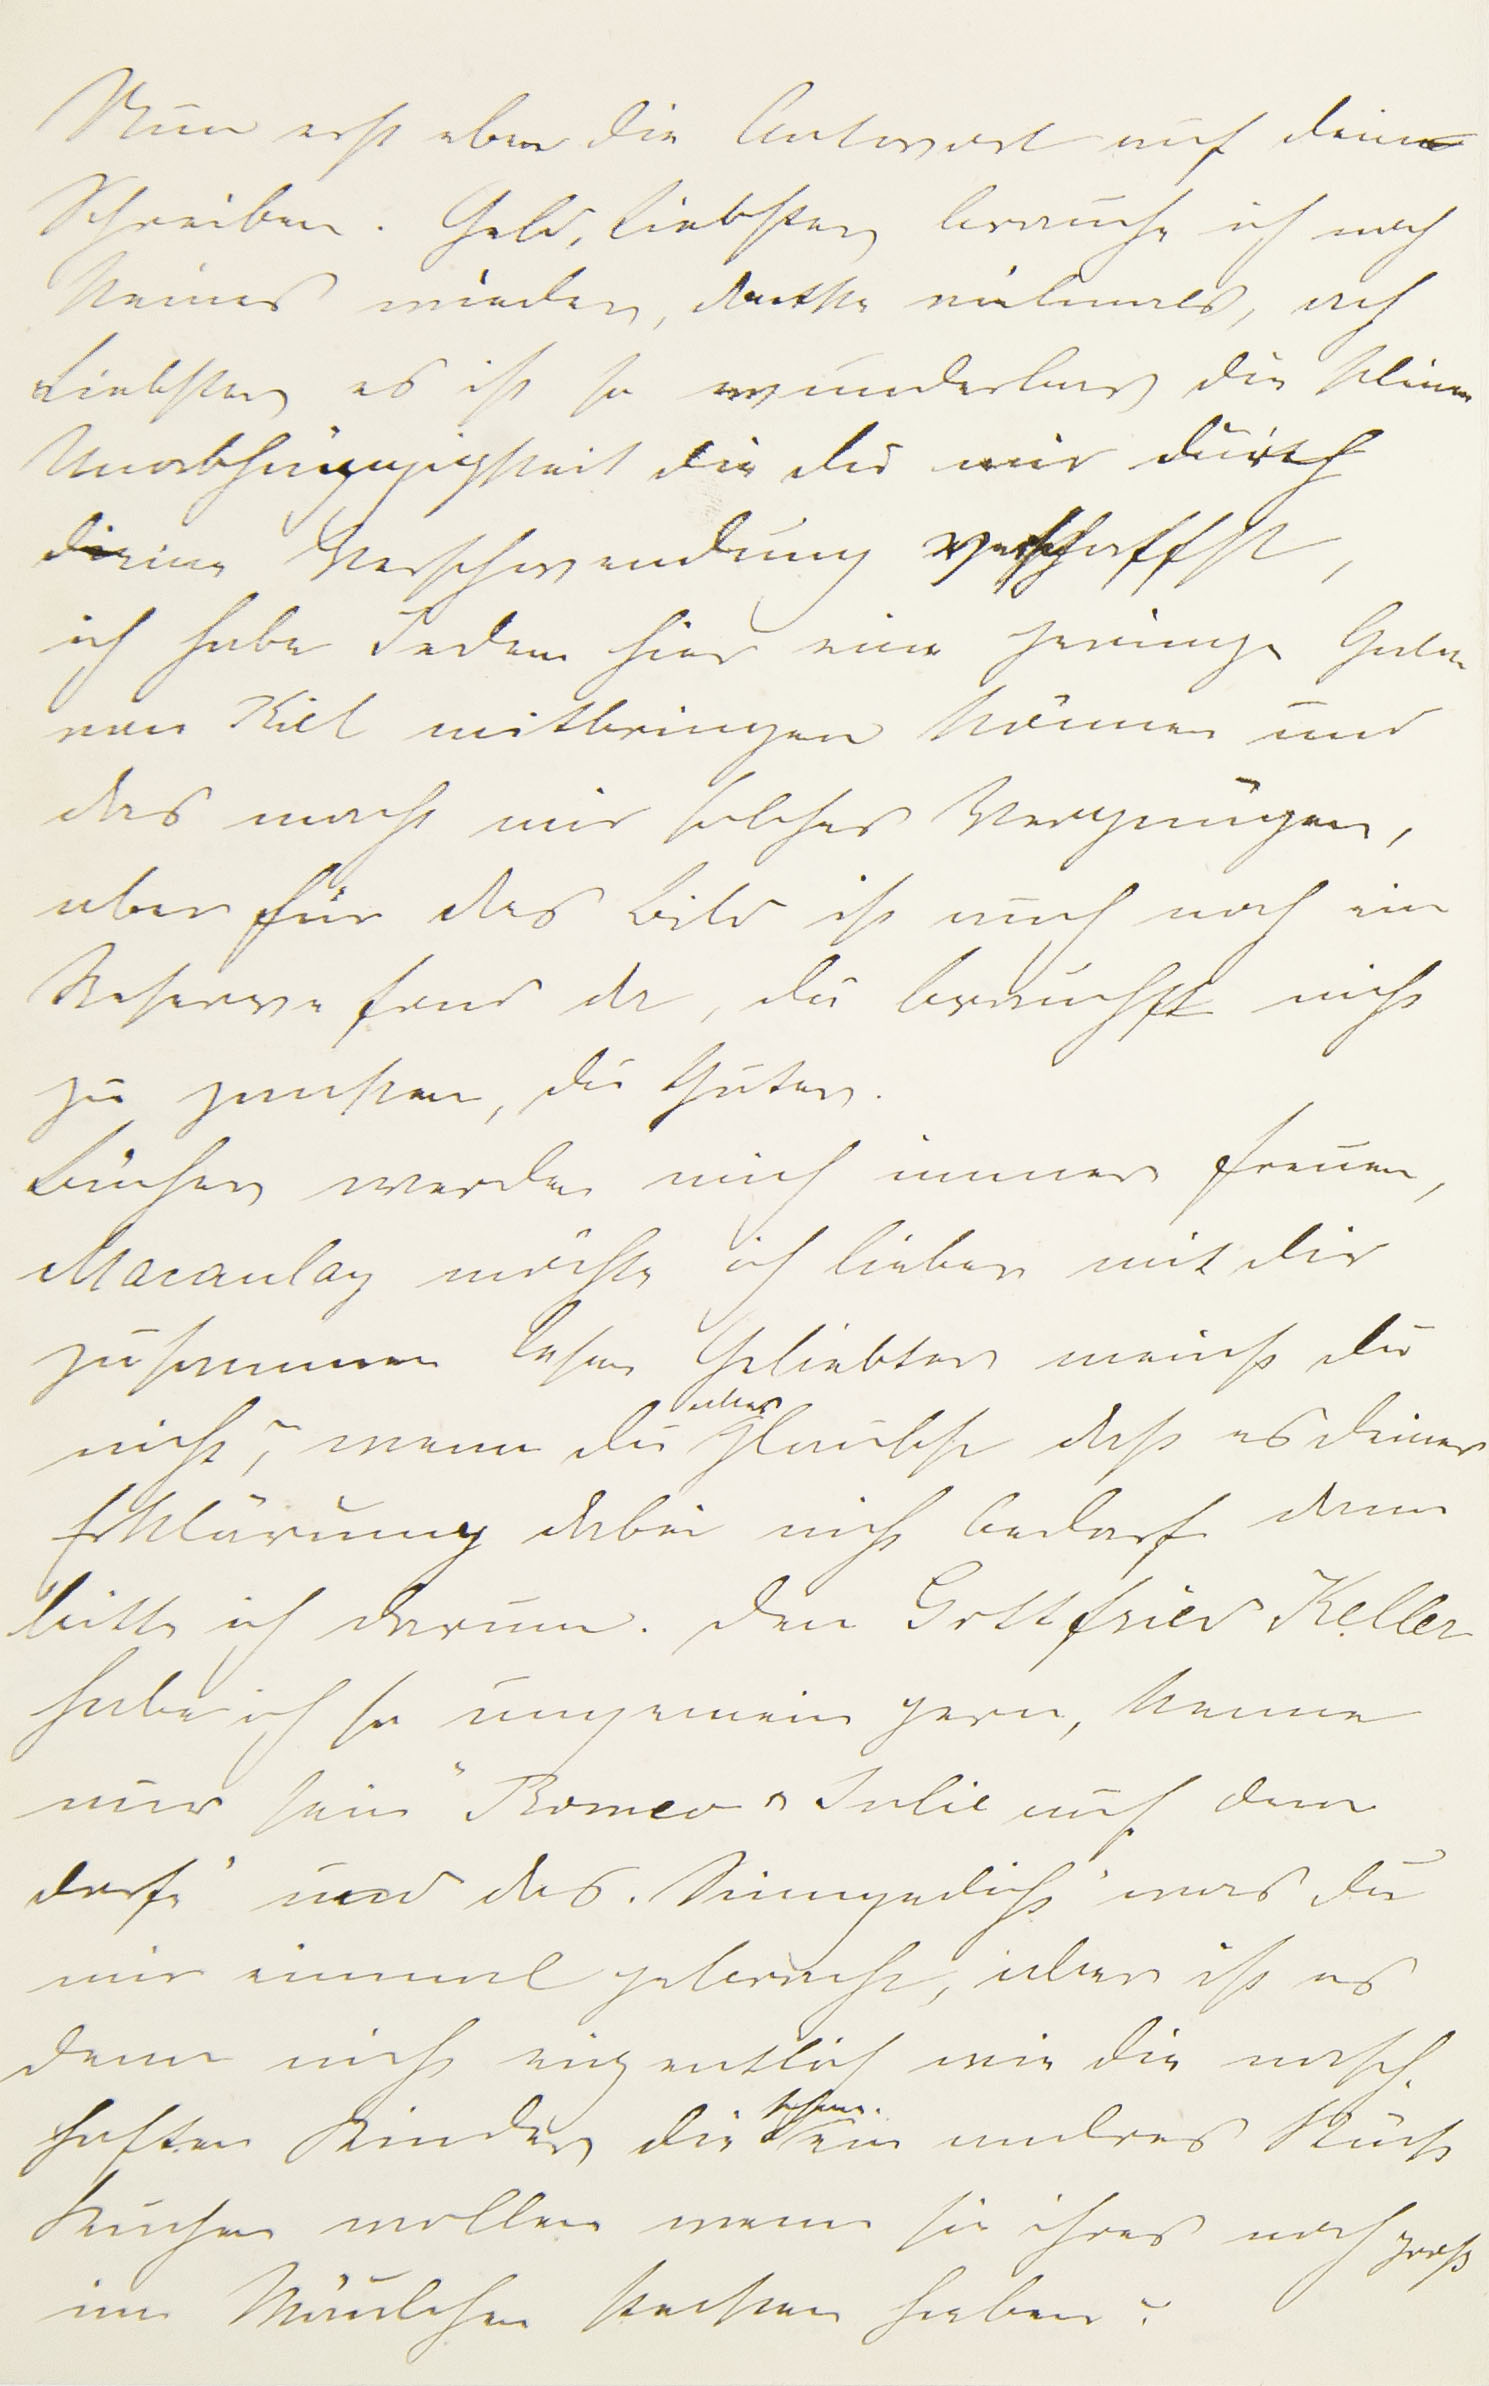 Nun erst eben die Antwort auf dein
Schreiben. Geld, Liebster brauche ich noch
keines wieder, danke vielmals, ach
Liebster es ist so wunderbar die kleine
Unabhängigkeit die du mir durch
deine Verschwendung verschaffst,
ich habe Jedem hier eine geringe Gabe
von Kiel mitbringen können und
das macht mir solches Vergnügen,
aber für das Bild ist auch noch ein
Reservefond da, du brauchst nicht
zu zanken, du Guter.
Bücher werden mich immer freuen,
Macaulay möchte ich lieber mit dir
zusammen lesen Geliebter meinst du
nicht?, wenn du aber glaubst daß es deiner
Erklärung dabei nicht bedarf dann
bitte ich darum. Den Gottfried Keller
habe ich so ungemein gern, kenne
nur sein "Romeo u Julie auf dem
Dorfe" und das "Sinngedicht" was du
mir einmal gebracht, aber ist es
denn nicht eigentlich wie die nasch-
haften Kinder die schon ein andres Stück
Kuchen wollen wenn sie ihres noch groß
im Mäulchen stecken haben?